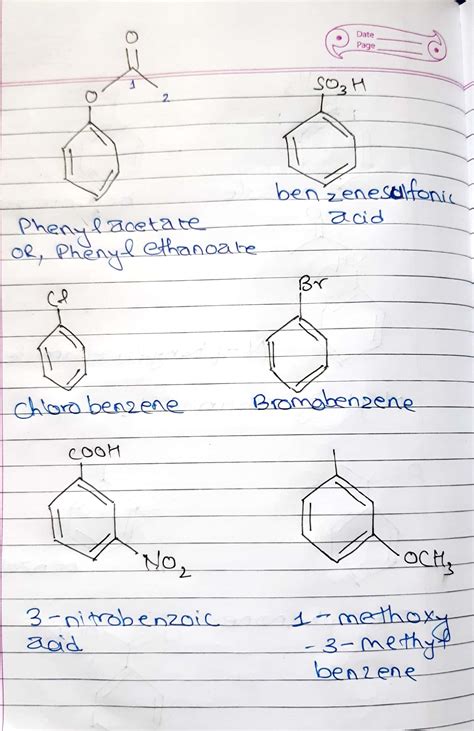 Date
Page
O
O
1
2
SO3H
benzenesulfonic
acid
Phenylacetate
OR, Phenyl ethanoate
Cl
Br
Chlorobenzene
Bromobenzene
COOH
NO2
OCH3
3-nitrobenzoic
acid
1-methoxy
-3-methyl
benzene